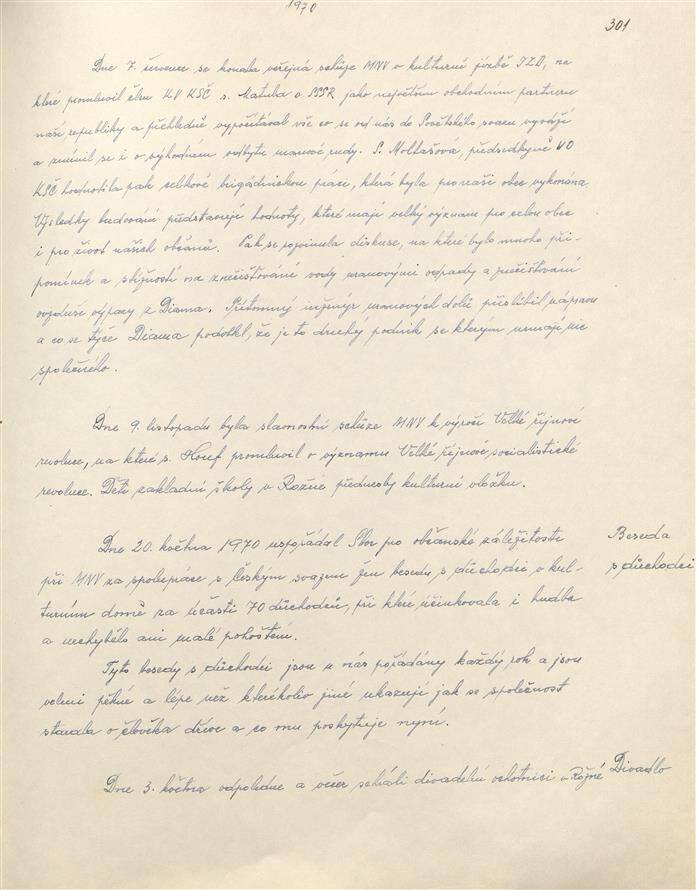 1970
301
Dne 7. července se konala veřejná schůze MNV v kulturní jizbě JZD, na
které promluvil člen KV KSČ s. Matula o SSSR jako největším obchodním partneru
naší republiky a přehledně vypočítával vše co se od nás do Sovětského svazu vyváží
a zmínil se i o výhodném odbytu uranové rudy. S. Moltašova, předsedkyně VO
KSČ hodnotila pak celkově brigádnickou práci, která byla pro naši obec vykonána.
Výsledky budování představují hodnoty, které mají velký význam pro celou obec
i pro život našich občanů. Pak se rozvinula diskuse, na které bylo mnoho při-
pomínek a stížností na znečišťování vody uranovými odpady a znečišťování
ovzduší výpary z Diama. Přítomný inženýr uranových dolů přislíbil nápravu
a co se týče Diama podotkl, že je to druhý podnik se kterým nemají nic
společného.
Dne 9. listopadu byla slavnostní schůze MNV k výročí Velké říjnové
revoluce, na které s. Houf promluvil o významu Velké říjnové socialistické
revoluce. Děti základní školy v Rožné přednesly kulturní vložku.
Dne 20. května 1970 uspořádal Sbor pro občanské záležitosti
Beseda
při MNV za spolupráce s českým svazem žen besedu s důchodci v kul-
s důchodci
turním domě za účasti 70 důchodců, při které účinkovala i hudba
a nechybělo ani malé pohoštění.
Tyto besedy s důchodci jsou u nás pořádány každý rok a jsou
velmi pěkné a lépe než kterékoliv jiné ukazují jak se společnost
starala o člověka dříve a co mu poskytuje nyní.
Dne 3. května odpoledne a večer sehráli divadelní ochotníci v Rožné
Divadlo